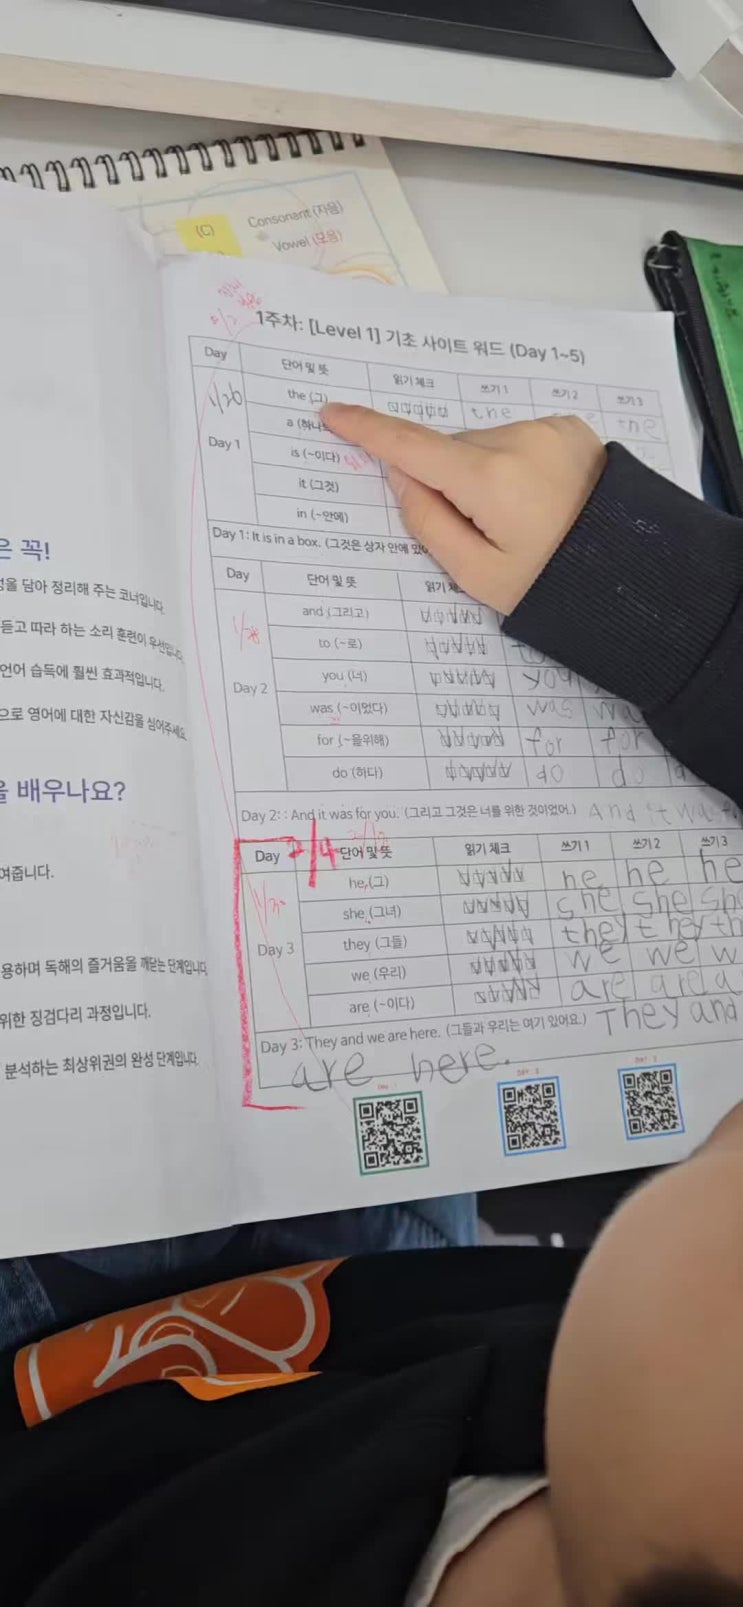 (C) Consonant (자음)
Vowel (모음)
1주차: [Level 1] 기초 사이트 워드 (Day 1~5)
Day 단어 및 뜻 읽기 체크 쓰기 1 쓰기 2 쓰기 3
1/26
Day 1
the (그) the the
a (하나
is (~이다)
it (그것)
in (~안에)
Day 1: It is in a box. (그것은 상자 안에 있어
Day 단어 및 뜻 읽기 체
1/28
Day 2
and (그리고)
to (~로)
you (너) you
was (~이었다) was wa
for (~을위해) for for
do (하다) do do
Day 2: : And it was for you. (그리고 그것은 너를 위한 것이었어.) And it was
Day 2/4 단어 및 뜻 읽기 체크 쓰기 1 쓰기 2 쓰기 3
Day 3
he (그) he he he
she (그녀) she she she
they (그들) they they th
we (우리) we we w
are (~이다) are are a
Day 3: They and we are here. (그들과 우리는 여기 있어요.) They and
are here.
은 꼭!
을 담아 정리해 주는 코너입니다.
듣고 따라 하는 소리 훈련이 우선입니다.
언어 습득에 훨씬 효과적입니다.
으로 영어에 대한 자신감을 심어주세요.
을 배우나요?
여줍니다.
용하며 독해의 즐거움을 깨닫는 단계입니다.
위한 징검다리 과정입니다.
분석하는 최상위권의 완성 단계입니다.